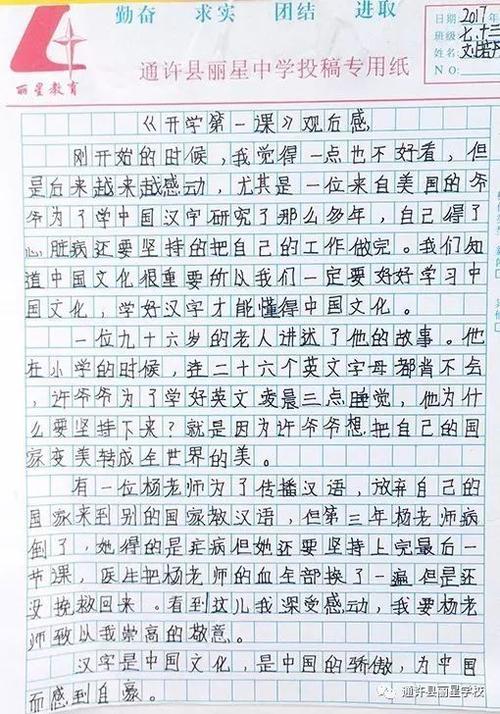 勤奋 求实 团结 进取
日期 2017年
班级 七.十三
姓名
NO:
丽星教育
通许县丽星中学投稿专用纸
《开学第一课》观后感
刚开始的时候，我觉得一点也不好看，但
是后来越来越感动，尤其是一位来自美国的爷
爷为了学中国汉字研究了那么多年，自己得了
心脏病还要坚持的把自己的工作做完。我们知
道中国文化很重要所以我们一定要好好学习中
国文化，学好汉字才能懂得中国文化。
一位九十六岁的老人讲述了他的故事。他
在小学的时候，连二十六个英文字母都背不会
，许爷爷为了学好英文凌晨三点睡觉，他为什
么要坚持下来？就是因为许爷爷想把自己的国
家变美转成全世界的美。
有一位杨老师为了传播汉语，放弃自己的
国家来到别的国家教汉语，但第三年杨老师病
倒了，她得的是疟病但她还要坚持上完最后一
节课，医生把杨老师的血全部换了一遍但是还
没挽救回来。看到这儿我深受感动，我要杨老
师致以我崇高的敬意。
汉字是中国文化，是中国的骄傲，为中国
而感到自豪。
通许县丽星学校